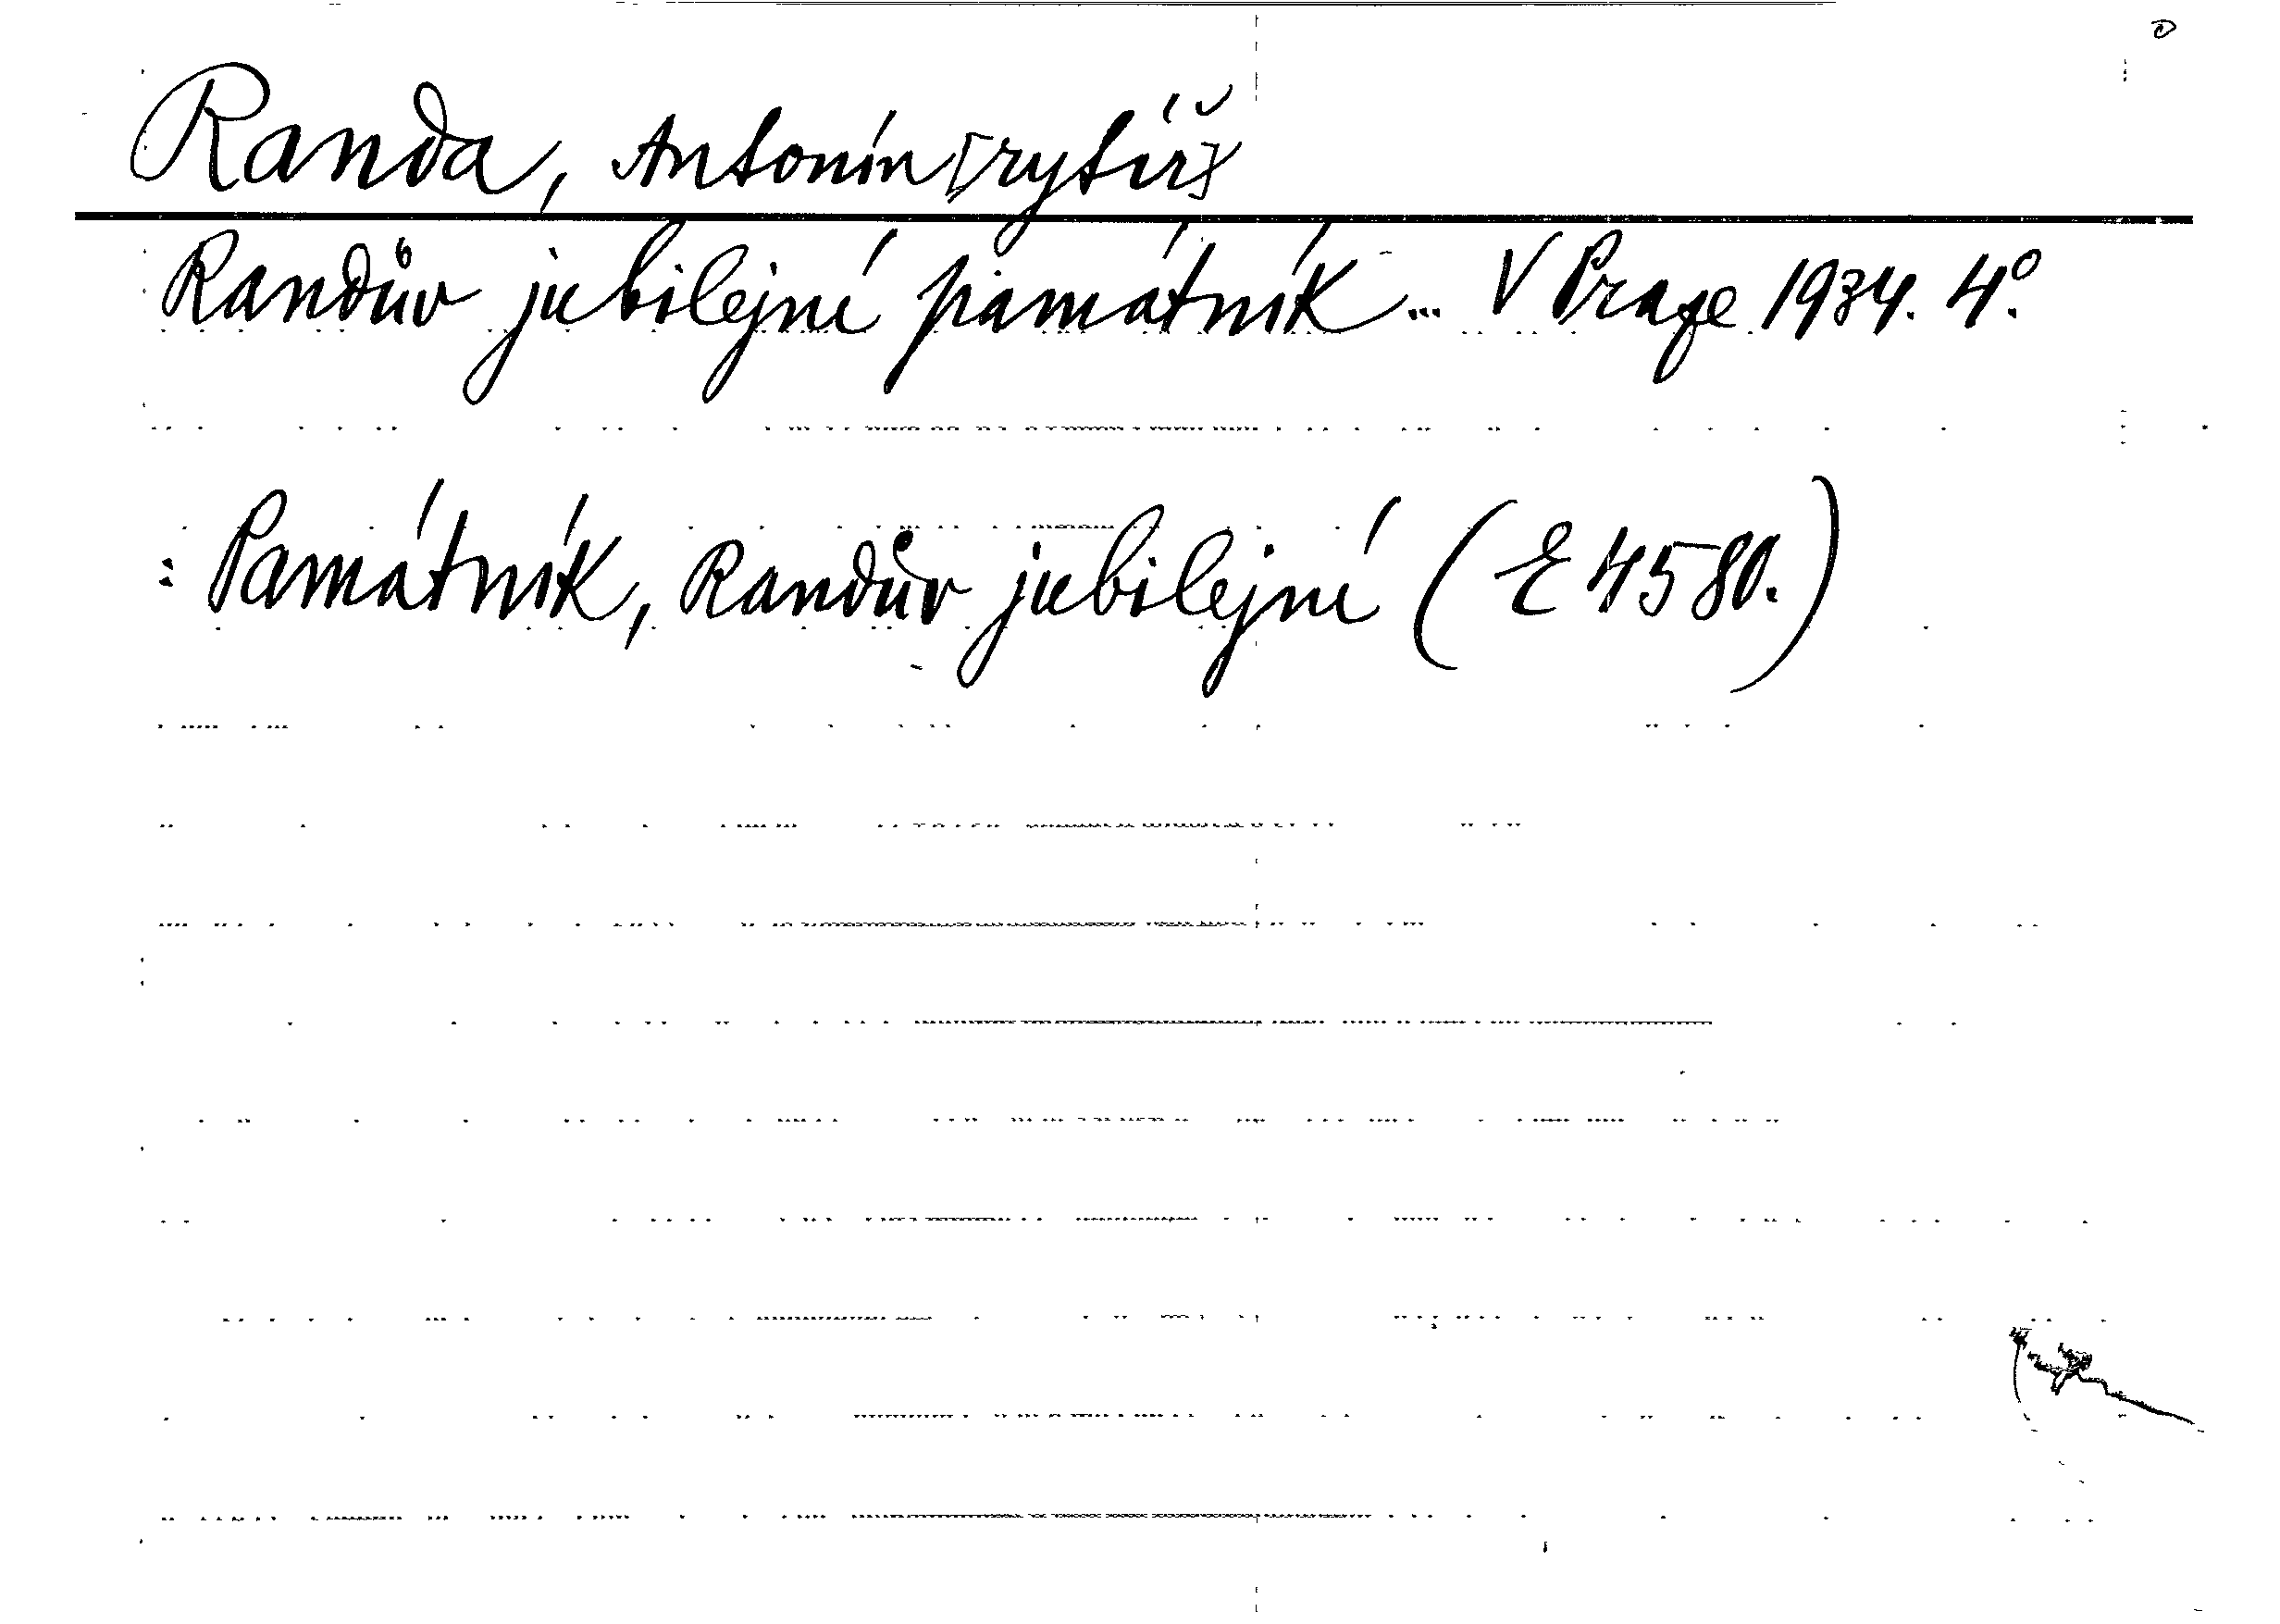 Randa, Antonín [rytíř]
Randův jubilejní památník ... V Praze 1934. 4°.
: Památník, Randův jubilejní (E 4580.)